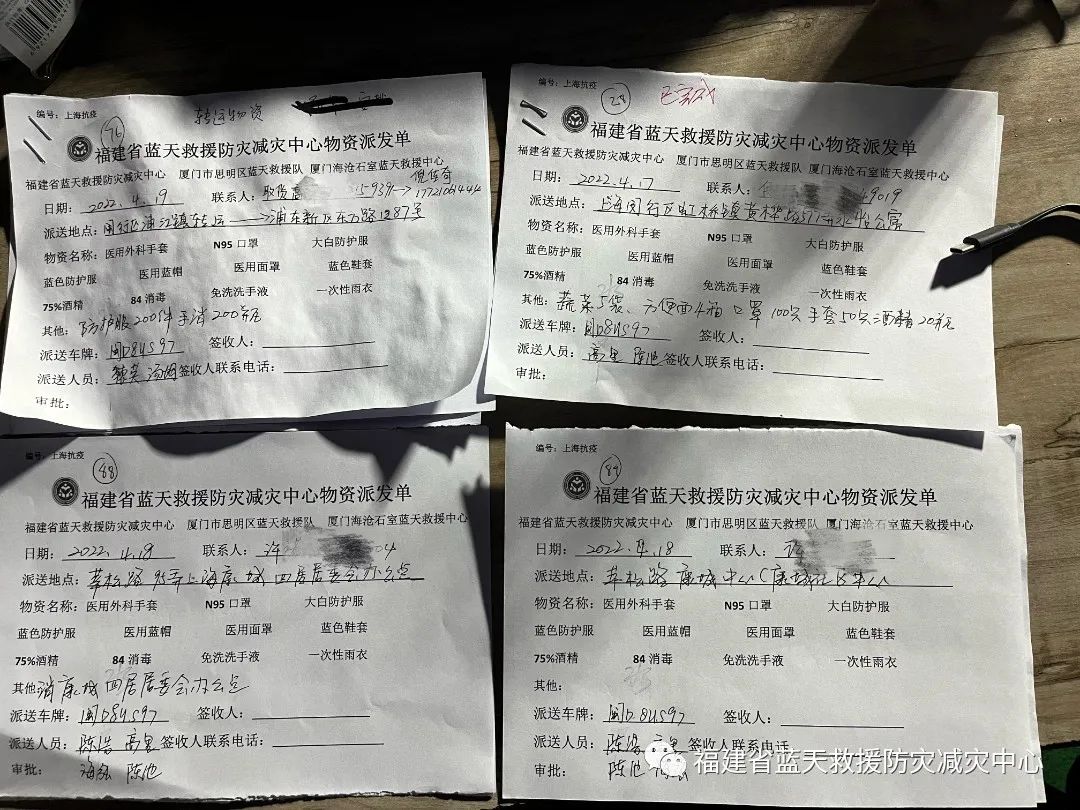 编号：上海抗疫
转运物资
76
福建省蓝天救援防灾减灾中心物资派发单
福建省蓝天救援防灾减灾中心 厦门市思明区蓝天救援队 厦门海沧石室蓝天救援中心
日期：2022.4.19 联系人：
17721061444
派送地点：闵行区浦江镇转运→浦东新区东方路1287号
物资名称：医用外科手套 N95口罩 大白防护服
蓝色防护服 医用蓝帽 医用面罩 蓝色鞋套
75%酒精 84消毒 免洗洗手液 一次性雨衣
其他：防护服200件 手消200瓶
派送车牌：闽D84S97 签收人：
派送人员： 签收人联系电话：
审批：
编号：上海抗疫
28
已完成
福建省蓝天救援防灾减灾中心物资派发单
福建省蓝天救援防灾减灾中心 厦门市思明区蓝天救援队 厦门海沧石室蓝天救援中心
日期：2022.4.17 联系人： 49019
派送地点：上海闵行区虹桥镇黄桦路
物资名称：医用外科手套 N95口罩 大白防护服
蓝色防护服 医用蓝帽 医用面罩 蓝色鞋套
75%酒精 84消毒 免洗洗手液 一次性雨衣
其他：蔬菜5袋、方便面4箱 口罩100只 手套50只 酒精20瓶
派送车牌：闽D84S97 签收人：
派送人员：高星 陈池 签收人联系电话：
审批：
编号：上海抗疫
88
福建省蓝天救援防灾减灾中心物资派发单
福建省蓝天救援防灾减灾中心 厦门市思明区蓝天救援队 厦门海沧石室蓝天救援中心
日期：2022.4.18 联系人：许 04
派送地点：莘松路 上海康城四居居委会办公点
物资名称：医用外科手套 N95口罩 大白防护服
蓝色防护服 医用蓝帽 医用面罩 蓝色鞋套
75%酒精 84消毒 免洗洗手液 一次性雨衣
其他：消康城四居居委会办公点
派送车牌：闽D84S97 签收人：
派送人员：陈浩 高星 签收人联系电话：
审批： 陈池
编号：上海抗疫
89
福建省蓝天救援防灾减灾中心物资派发单
福建省蓝天救援防灾减灾中心 厦门市思明区蓝天救援队 厦门海沧石室蓝天救援中心
日期：2022.4.18 联系人：
派送地点：莘松路康城中心(康城社区中心
物资名称：医用外科手套 N95口罩 大白防护服
蓝色防护服 医用蓝帽 医用面罩 蓝色鞋套
75%酒精 84消毒 免洗洗手液 一次性雨衣
其他：
派送车牌：闽D84S97 签收人：
派送人员：陈浩 签收人联系电话
审批：陈池
福建省蓝天救援防灾减灾中心